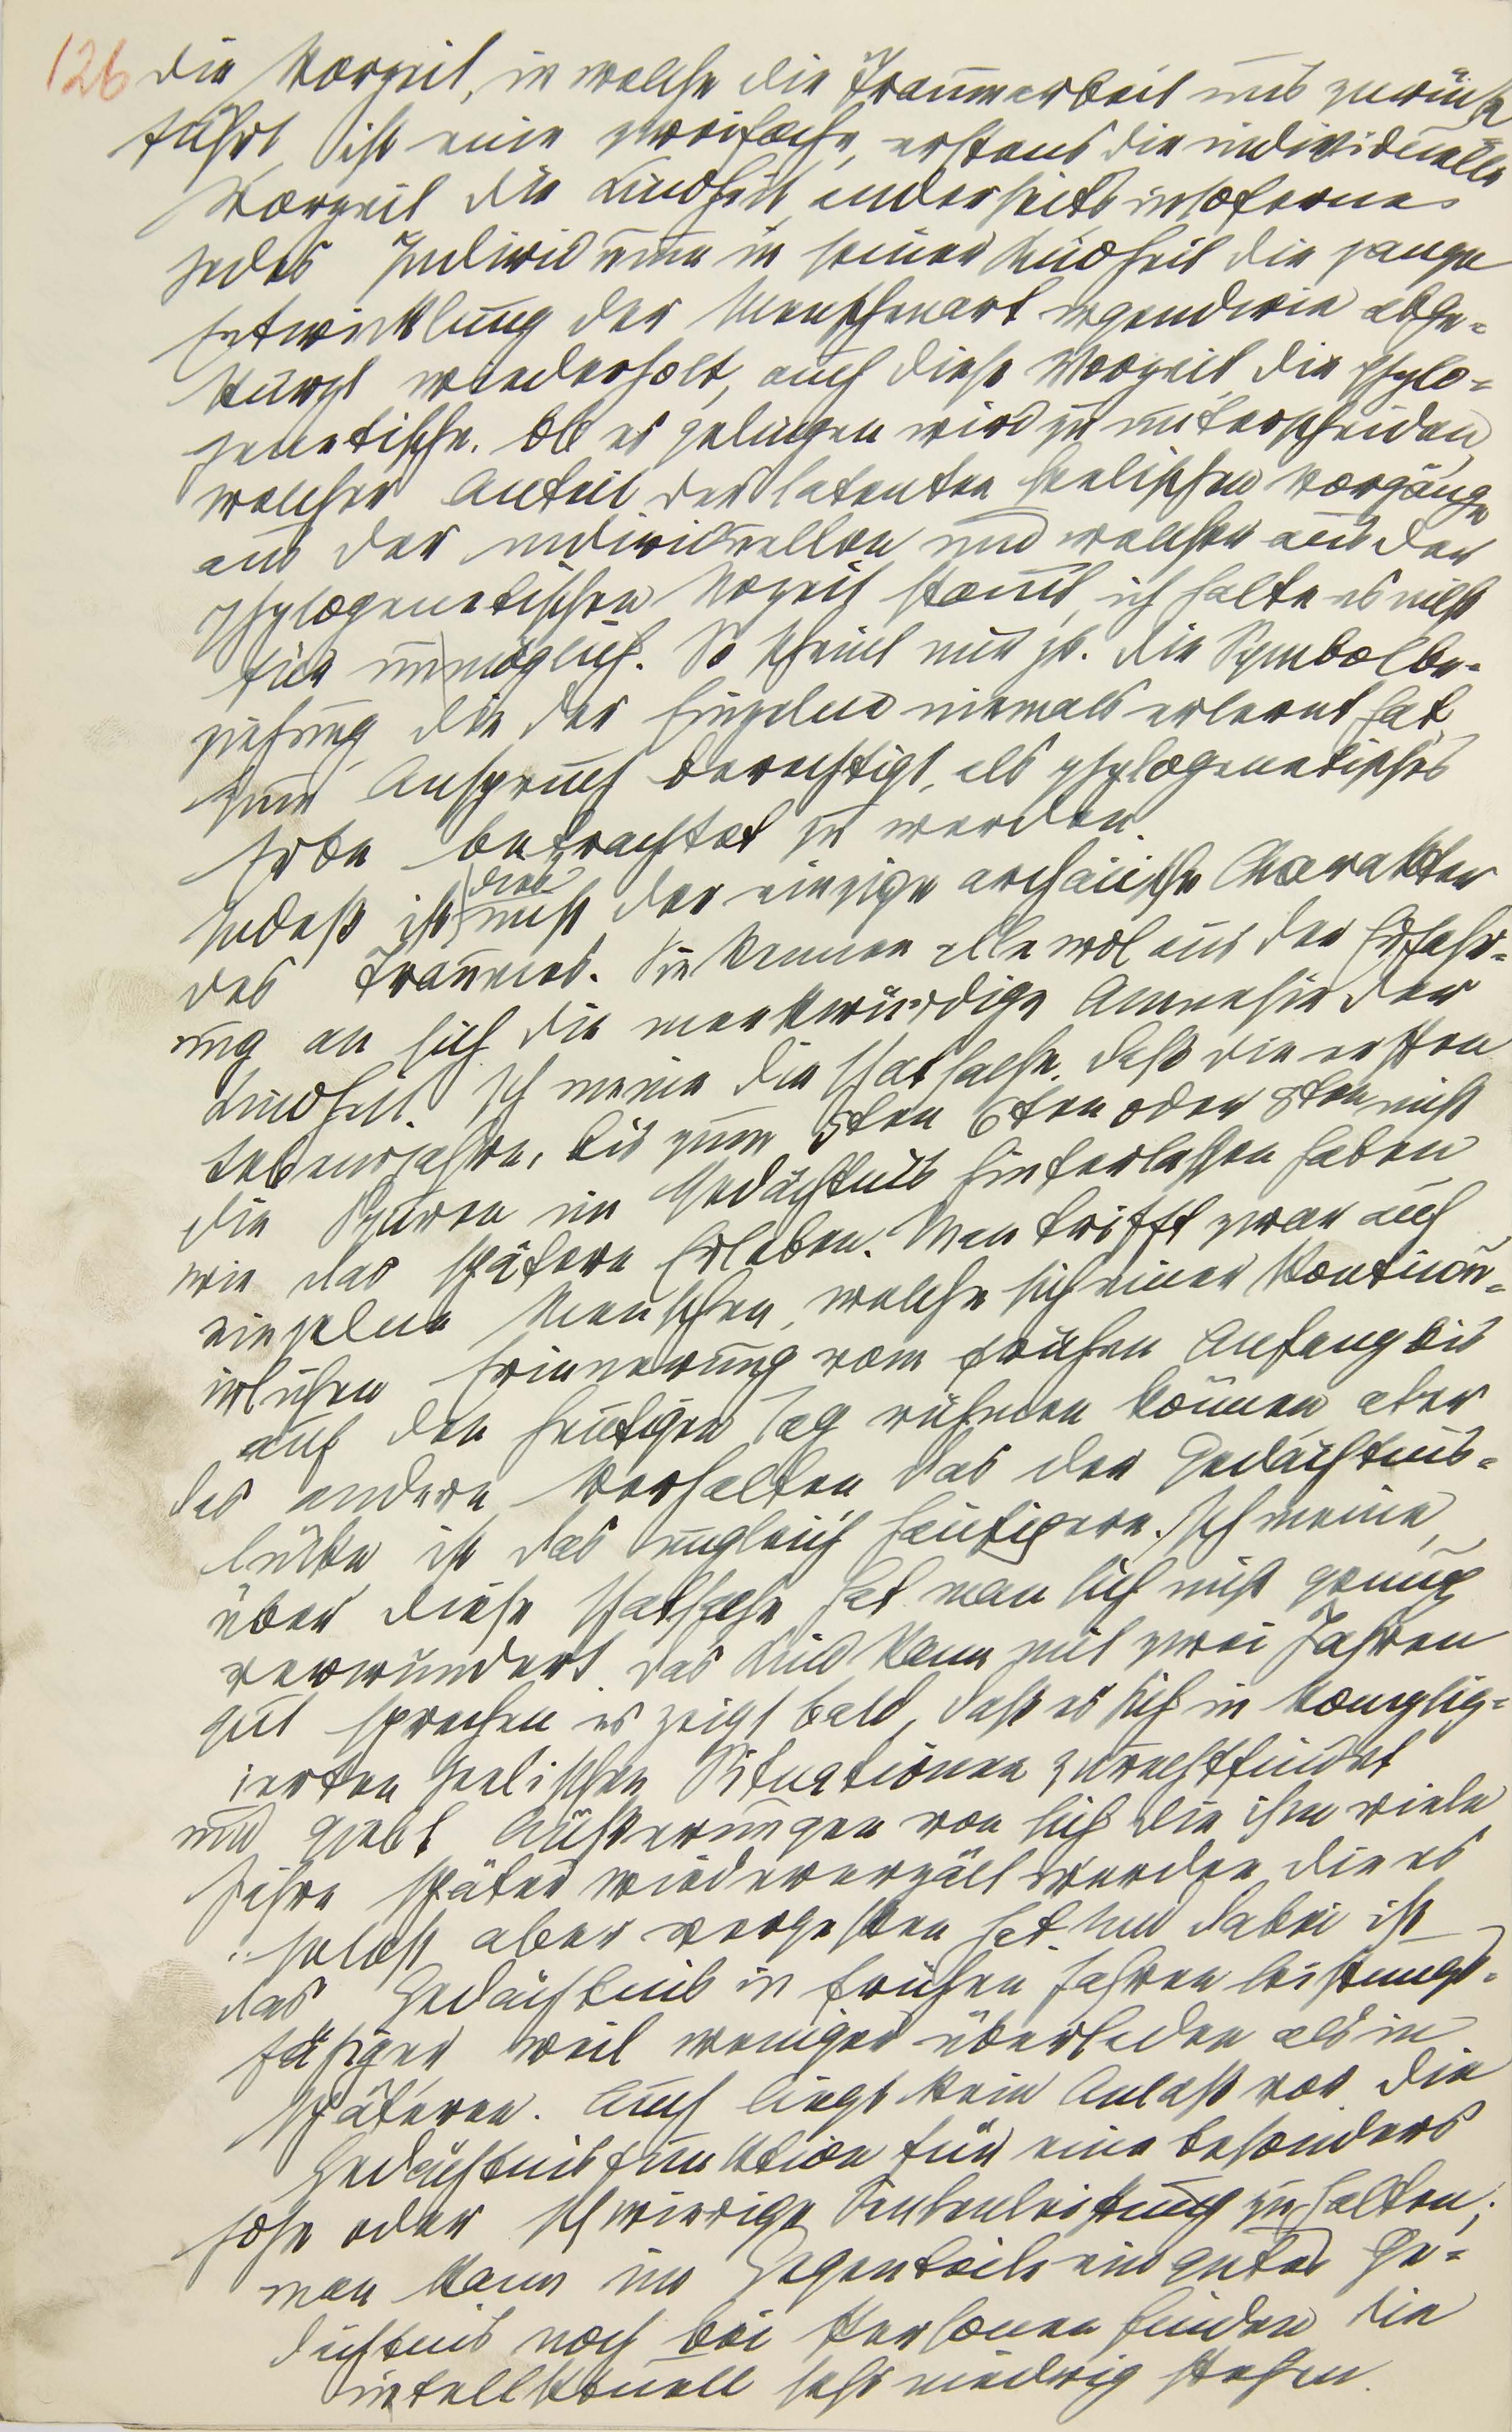 126 die Vorzeit, in welche die Traumarbeit uns zurück
führt, ist eine zweifache, erstens die individuelle
Vorzeit die Kindheit, anderseits insoferne
jedes Individuum in seiner Kindheit die ganze
Entwicklung der Menschenart irgendwie abge-
kürzt wiederholt, auch diese Vorzeit, die phylo-
genetische. Ob es gelingen wird zu unterscheiden,
welcher Anteil der latenten seelischen Vorgänge
aus der individuellen und welcher aus der
phylogenetischen Vorzeit stamt, ich halte es nicht
für unmöglich. So scheint mir zb. die Symbolbe-
ziehung, die der Einzelne niemals erlernt hat,
zum Anspruch berechtigt, als phylogenetisches
Erbe betrachtet zu werden.
Indeß ist dies nicht der einzige archäische Charakter
des Traumes. Sie kennen alle wol aus der Erfahr-
ung an sich die merkwürdige Amnesie der
Kindheit. Ich meine die Thatsache, daß die ersten
Lebensjahre, bis zum 5ten 6ten oder 8ten nicht
die Spuren im Gedächtnis hinterlassen haben
wie das spätere Erleben. Man trifft zwar auch
einzelne Menschen, welche sich einer Kontinu-
irlichen Erinnerung vom frühen Anfang bis
auf den heutigen Tag rühmen können aber
das andere Verhalten das der Gedächtnis-
lücke ist das ungleich häufigere. Ich meine,
über diese Thatsache hat man sich nicht genug
verwundert. Das Kind kann mit zwei Jahren
gut sprechen es zeigt bald, daß es sich in komplig-
ierten seelischen Situationen zurechtfindet
und giebt Äußerungen von sich die ihm viele
Jahre später wiedererzält werden die es
selbst aber vergessen hat Und dabei ist
das Gedächtnis in frühen Jahren leistungs-
fähiger weil weniger überladen als in
späteren. Auch liegt kein Anlaß vor die
Gedächtnisfunktion für eine besonders
hohe oder schwierige Seelenleistung zu halten;
man kann im Gegenteile ein gutes Ge-
dächtnis noch bei Personen finden die
intellektuell sehr niedrig stehen.